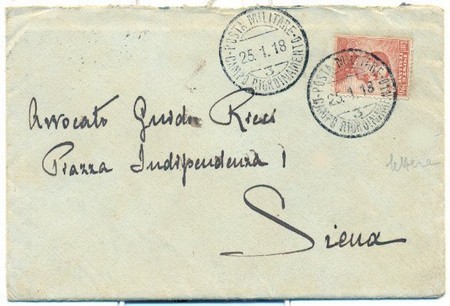 POSTA MILITARE
25.1.18
3
CAMPO RIORDINAMENTO
POSTA MILITARE
25.1.18
3
CAMPO RIORDINAMEN
Avvocato Guido Ricci
Piazza Indipendenza 1
lettera
Siena